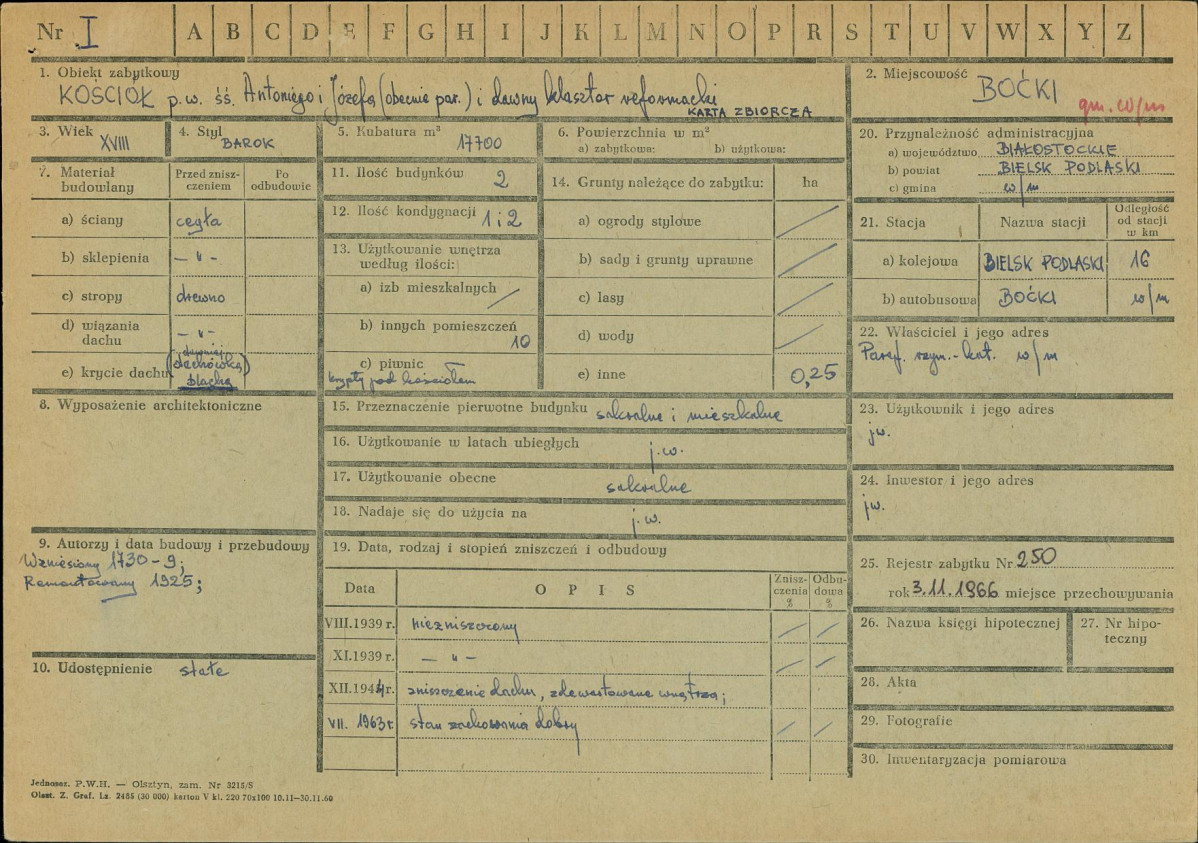 Nr I A B C D E F G H I J K L M N O P R S T U V W X Y Z
1. Obiekt zabytkowy
KOŚCIÓŁ p.w. śś. Antoniego i Józefa (obecnie par.) i dawny klasztor reformacki
KARTA ZBIORCZA
2. Miejscowość
BOĆKI
gm. w/m
3. Wiek
XVIII
4. Styl
BAROK
5. Kubatura m³
17700
6. Powierzchnia w m²
a) zabytkowa: b) użytkowa:
7. Materiał budowlany
Przed znisz-
czeniem
Po
odbudowie
a) ściany cegła
b) sklepienia — " —
c) stropy drewno
d) wiązania
dachu — " —
e) krycie dachu (dawniej
dachówka)
blacha
8. Wyposażenie architektoniczne
9. Autorzy i data budowy i przebudowy
Wzniesiony 1730-9;
Remontowany 1925;
10. Udostępnienie stałe
11. Ilość budynków 2
12. Ilość kondygnacji 1 i 2
13. Użytkowanie wnętrza
według ilości:
a) izb mieszkalnych /
b) innych pomieszczeń
10
c) piwnic
krypty pod kościołem
14. Grunty należące do zabytku: ha
a) ogrody stylowe /
b) sady i grunty uprawne /
c) lasy /
d) wody /
e) inne 0,25
15. Przeznaczenie pierwotne budynku sakralne i mieszkalne
16. Użytkowanie w latach ubiegłych j.w.
17. Użytkowanie obecne sakralne
18. Nadaje się do użycia na j.w.
19. Data, rodzaj i stopień zniszczeń i odbudowy
Data O P I S Znisz-
czenia
% Odbu-
dowa
%
VIII.1939 r. niezniszczony / /
XI.1939 r. — " — / /
XII.1944 r. zniszczenie dachu, zdewastowane wnętrza;
VII. 1963 r. stan zachowania dobry / /
20. Przynależność administracyjna
a) województwo BIAŁOSTOCKIE
b) powiat BIELSK PODLASKI
c) gmina w/m
21. Stacja Nazwa stacji Odległość
od stacji
w km
a) kolejowa BIELSK PODLASKI 16
b) autobusowa BOĆKI w/m
22. Właściciel i jego adres
Paraf. rzym.-kat. w/m
23. Użytkownik i jego adres
jw.
24. Inwestor i jego adres
jw.
25. Rejestr zabytku Nr 250
rok 3.11.1966 miejsce przechowywania
26. Nazwa księgi hipotecznej
27. Nr hipo-
teczny
28. Akta
29. Fotografie
30. Inwentaryzacja pomiarowa
Jednosz. P.W.H. — Olsztyn, zam. Nr 3215/S
Olszt. Z. Graf. Lz. 2485 (30 000) karton V kl. 220 70x100 10.11—30.11.60